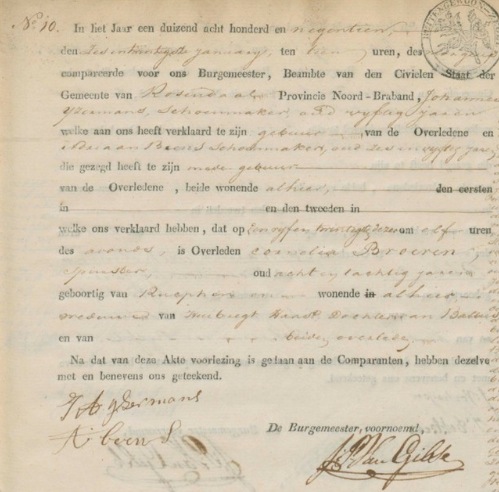 No. 10. In het Jaar een duizend acht honderd en negentien,
den Zesentwintigste january, ten uren, des
compareerde voor ons Burgemeester, Beambte van den Civielen Staat der
Gemeente van Rosendaal Provincie Noord-Braband, Johannes
IJzermans, Schoenmaker, oud vyftig jaren
welke aan ons heeft verklaard te zijn gebuur van de Overledene en
Adriaan Beens Schoenmaker, oud vyftig jaren
die gezegd heeft te zijn mede gebuur
van de Overledene, beide wonende alhier, den eersten
in en den tweeden in
welke ons verklaard hebben, dat op den vyfentwintigste dezer om elf uren
des avonds, is Overleden Cornelia Broeren
spinster, oud acht en tachtig jaren
geboortig van Rucphen wonende in alhier
weduwe van Huibregt Dochter van
en van beide overleden
Na dat van deze Akte voorlezing is gedaan aan de Comparanten, hebben dezelve
met en benevens ons geteekend.
IJzermans
A Beens
De Burgemeester, voornoemd,
Van Gilse